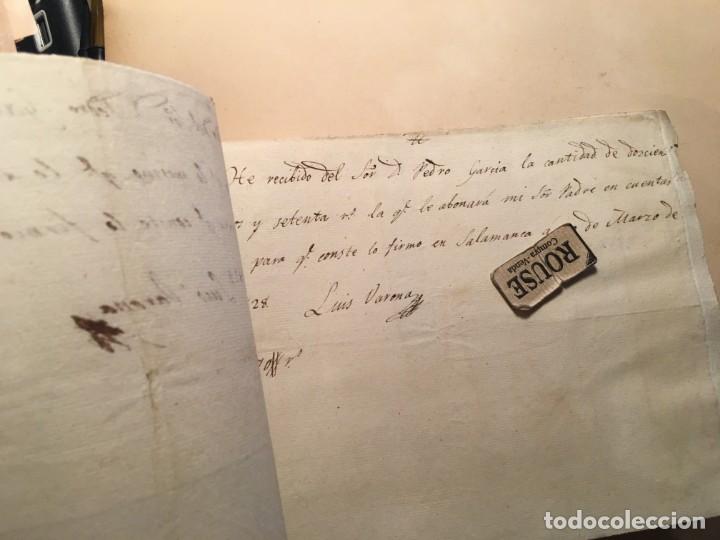 He recibido del Sor. D. Pedro Garcia la cantidad de doscien
y setenta rs. la qe. le abonará mi Sor. Padre en cuentas
para qe. conste lo firmo en Salamanca de Marzo de
28. Luis Varona
ROUSE
Compra-Venda
todocoleccion.net